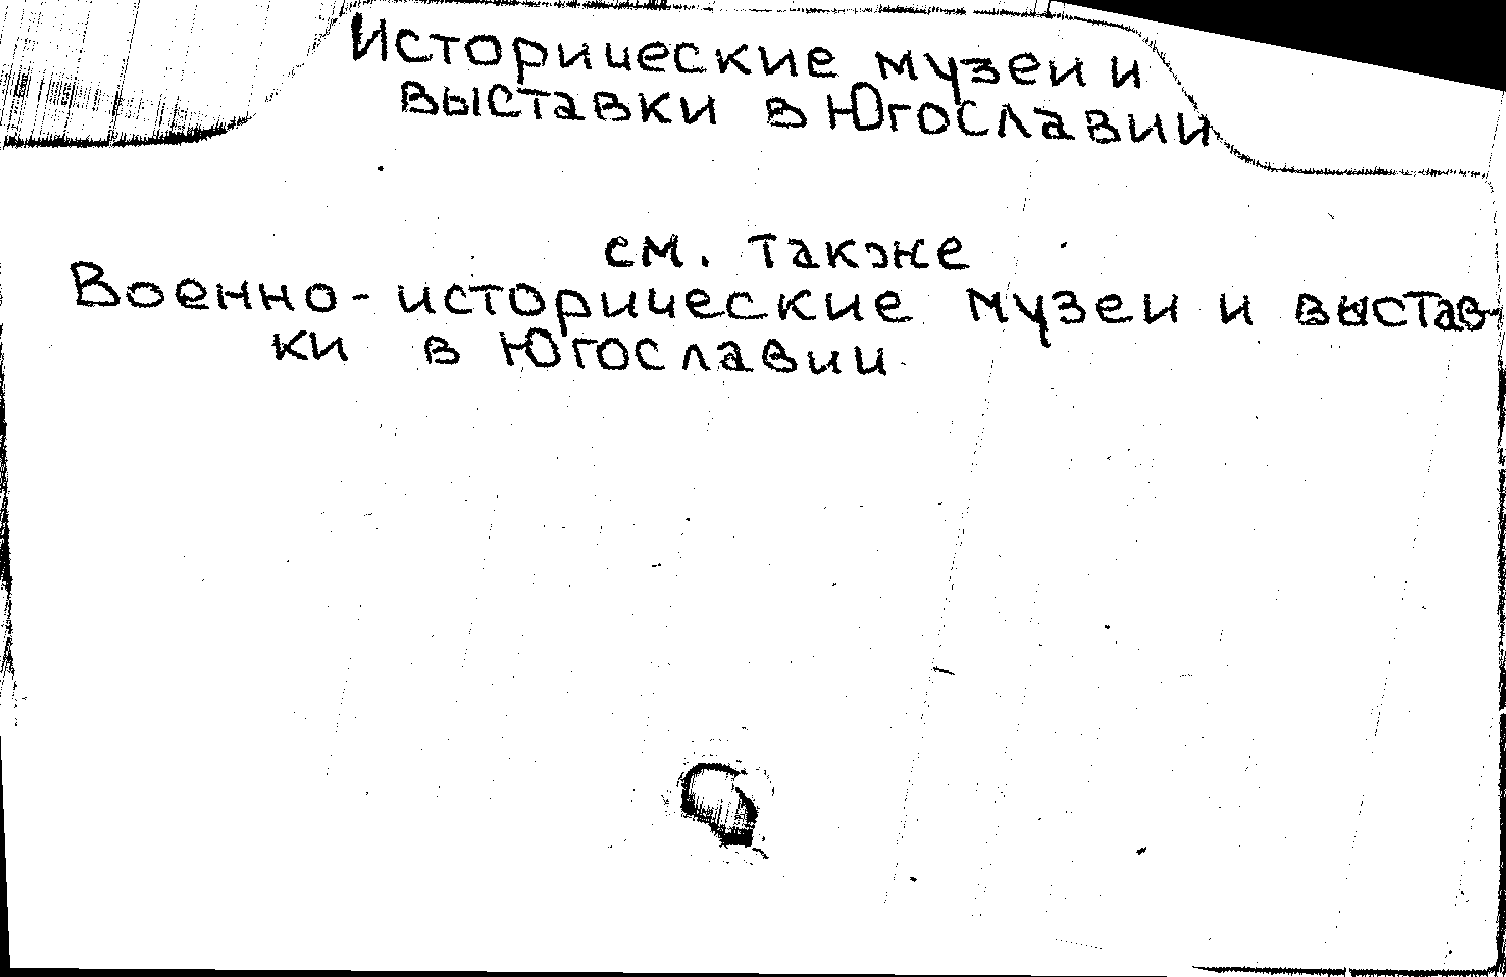 Исторические музеи и
выставки в Югославии
см. также
Военно-исторические музеи и выстав-
ки в Югославии